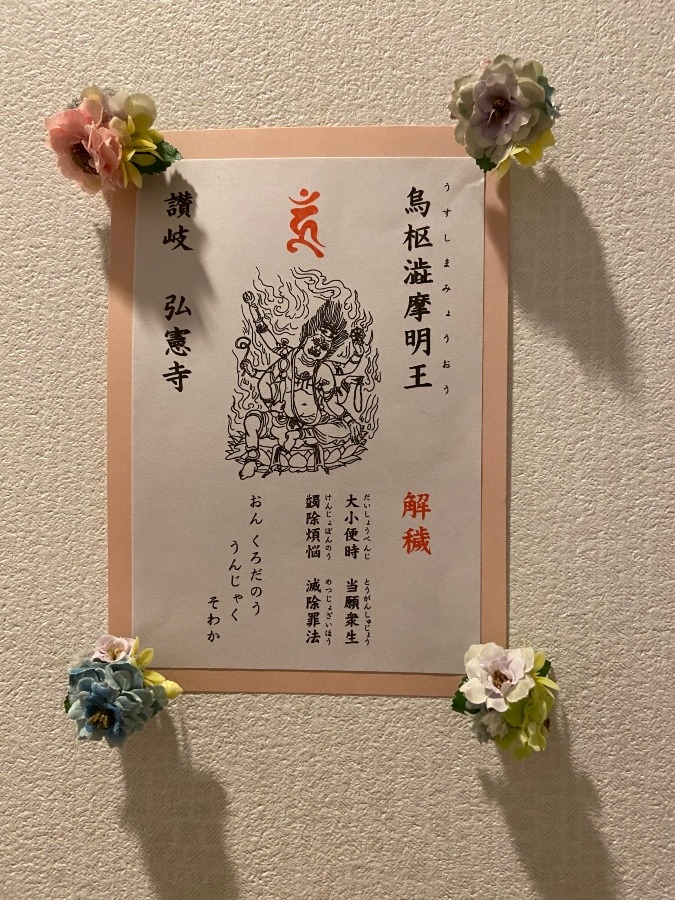 うすしまみょうおう
烏枢澁摩明王
解穢
だいしょうべんじ とうがんしゅじょう
大小便時 当願衆生
けんじょぼんのう めつじょざいほう
蠲除煩悩 滅除罪法
おん くろだのう
うんじゃく
そわか
讃岐 弘憲寺